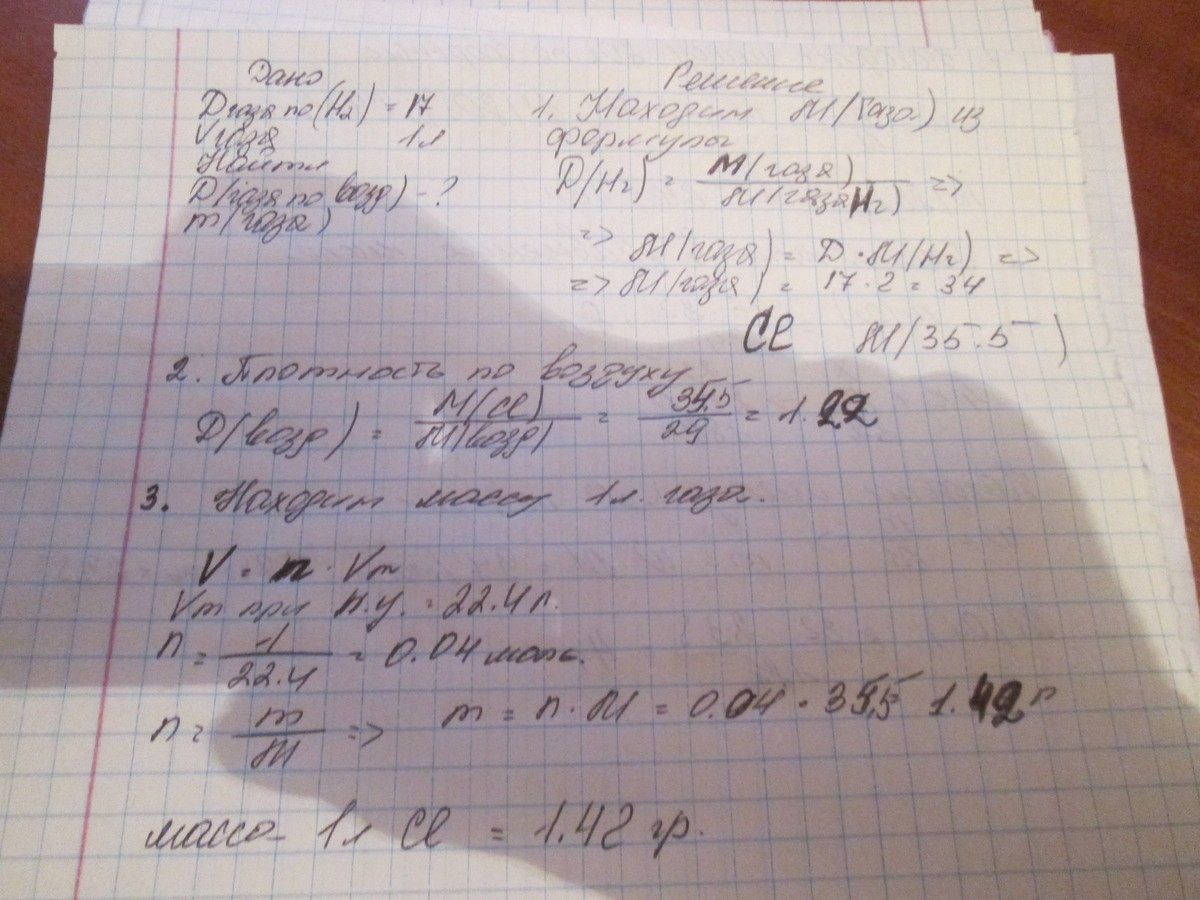 Дано
D газа по (H2) = 17
V газа 1л
Найти
D(газа по возд) - ?
m(газа)
Решение
1. Находим M(Газа) из
формулы
D(H2) = M(газа) / M(газа H2) =>
=> M(газа) = D · M(H2) =>
=> M(газа) = 17 · 2 = 34
Cl M(35.5)
2. Плотность по воздуху
D(возд) = M(Cl) / M(возд) = 35.5 / 29 = 1.22
3. Находим массу 1л. газа.
V = n · Vm
Vm при н.у. = 22.4 л.
n = 1 / 22.4 = 0.04 моль.
n = m / M => m = n · M = 0.04 · 35,5 1.42 г
масса 1л Cl = 1.42 гр.